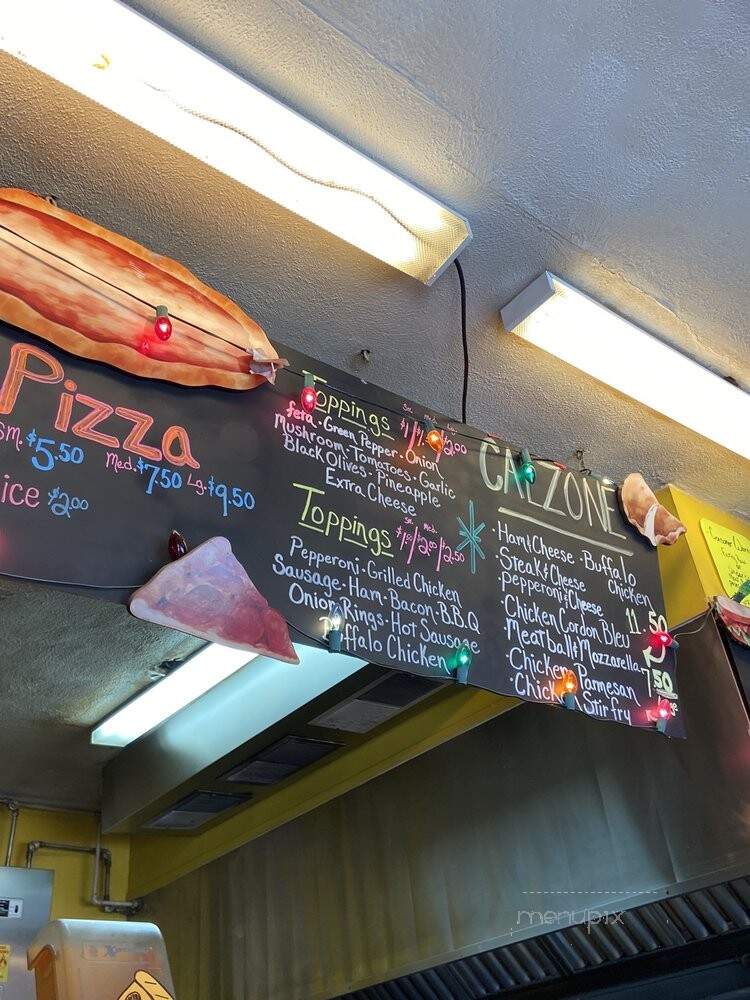 Pizza
sm. $5.50
Med. $7.50
Lg. $9.50
ice $2.00
Toppings
Sm. Med. Lg.
$2.00
feta · Green Pepper · Onion
Mushroom · Tomatoes · Garlic
Black Olives · Pineapple
Extra Cheese
Toppings
Sm. Med.
$1.50/$2.00/$2.50
Pepperoni · Grilled Chicken
Sausage · Ham · Bacon · B.B.Q
Onion Rings · Hot Sausage
ffalo Chicken
CALZONE
· Ham & Cheese · Buffalo
· Steak & Cheese Chicken
· Pepperoni & Cheese
· Chicken Cordon Bleu 11.50
· Meatball & Mozzarella
· Chicken Parmesan 7.50
· Chicken Stir fry
menupix